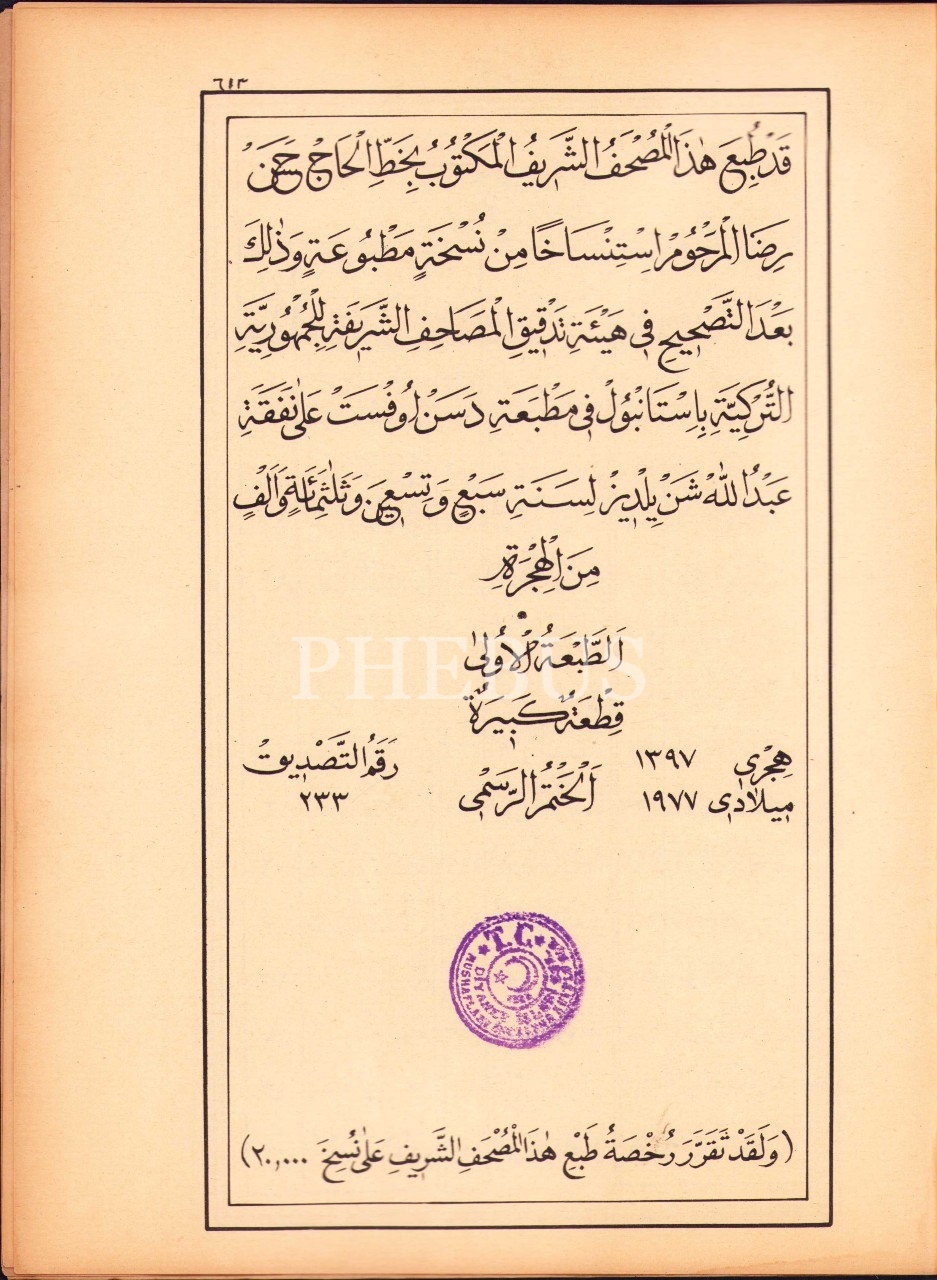 ٦١٣
قَدْ طُبِعَ هٰذَا الْمُصْحَفُ الشَّرِيفُ الْمَكْتُوبُ بِخَطِّ الْحَاجْ حَسَنْ
رِضَا الْمَرْحُومْ اِسْتِنْسَاخًا مِنْ نُسْخَةٍ مَطْبُوعَةٍ وَذٰلِكَ
بَعْدَ التَّصْحِيحِ فِي هَيْئَةِ تَدْقِيقِ الْمَصَاحِفِ الشَّرِيفَةِ لِلْجُمْهُورِيَّةِ
التُّرْكِيَّةِ بِاِسْتَانْبُولْ فِي مَطْبَعَةِ دَسَنْ اُوفْسَتْ عَلٰى نَفَقَةِ
عَبْدُ اللّٰهْ شَنْ يِلْدِيزْ لِسَنَةِ سَبْعٍ وَتِسْعِينَ وَثَلٰثِمِائَةٍ وَاَلْفٍ
مِنَ الْهِجْرَةِ
PHEBUS
اَلطَّبْعَةُ الْاُولٰى
قِطْعَةٌ كَبِيرَةٌ
هِجْرِي ١٣٩٧
رَقَمُ التَّصْدِيقْ
مِيلَادِي ١٩٧٧
اَلْخَتْمُ الرَّسْمِي
٢٣٣
T.C.
DİYANET
MUSHAFLARI
(وَلَقَدْ تَقَرَّرَ رُخْصَةُ طَبْعِ هٰذَا الْمُصْحَفِ الشَّرِيفِ عَلٰى نُسَخَ ٢٠,٠٠٠)